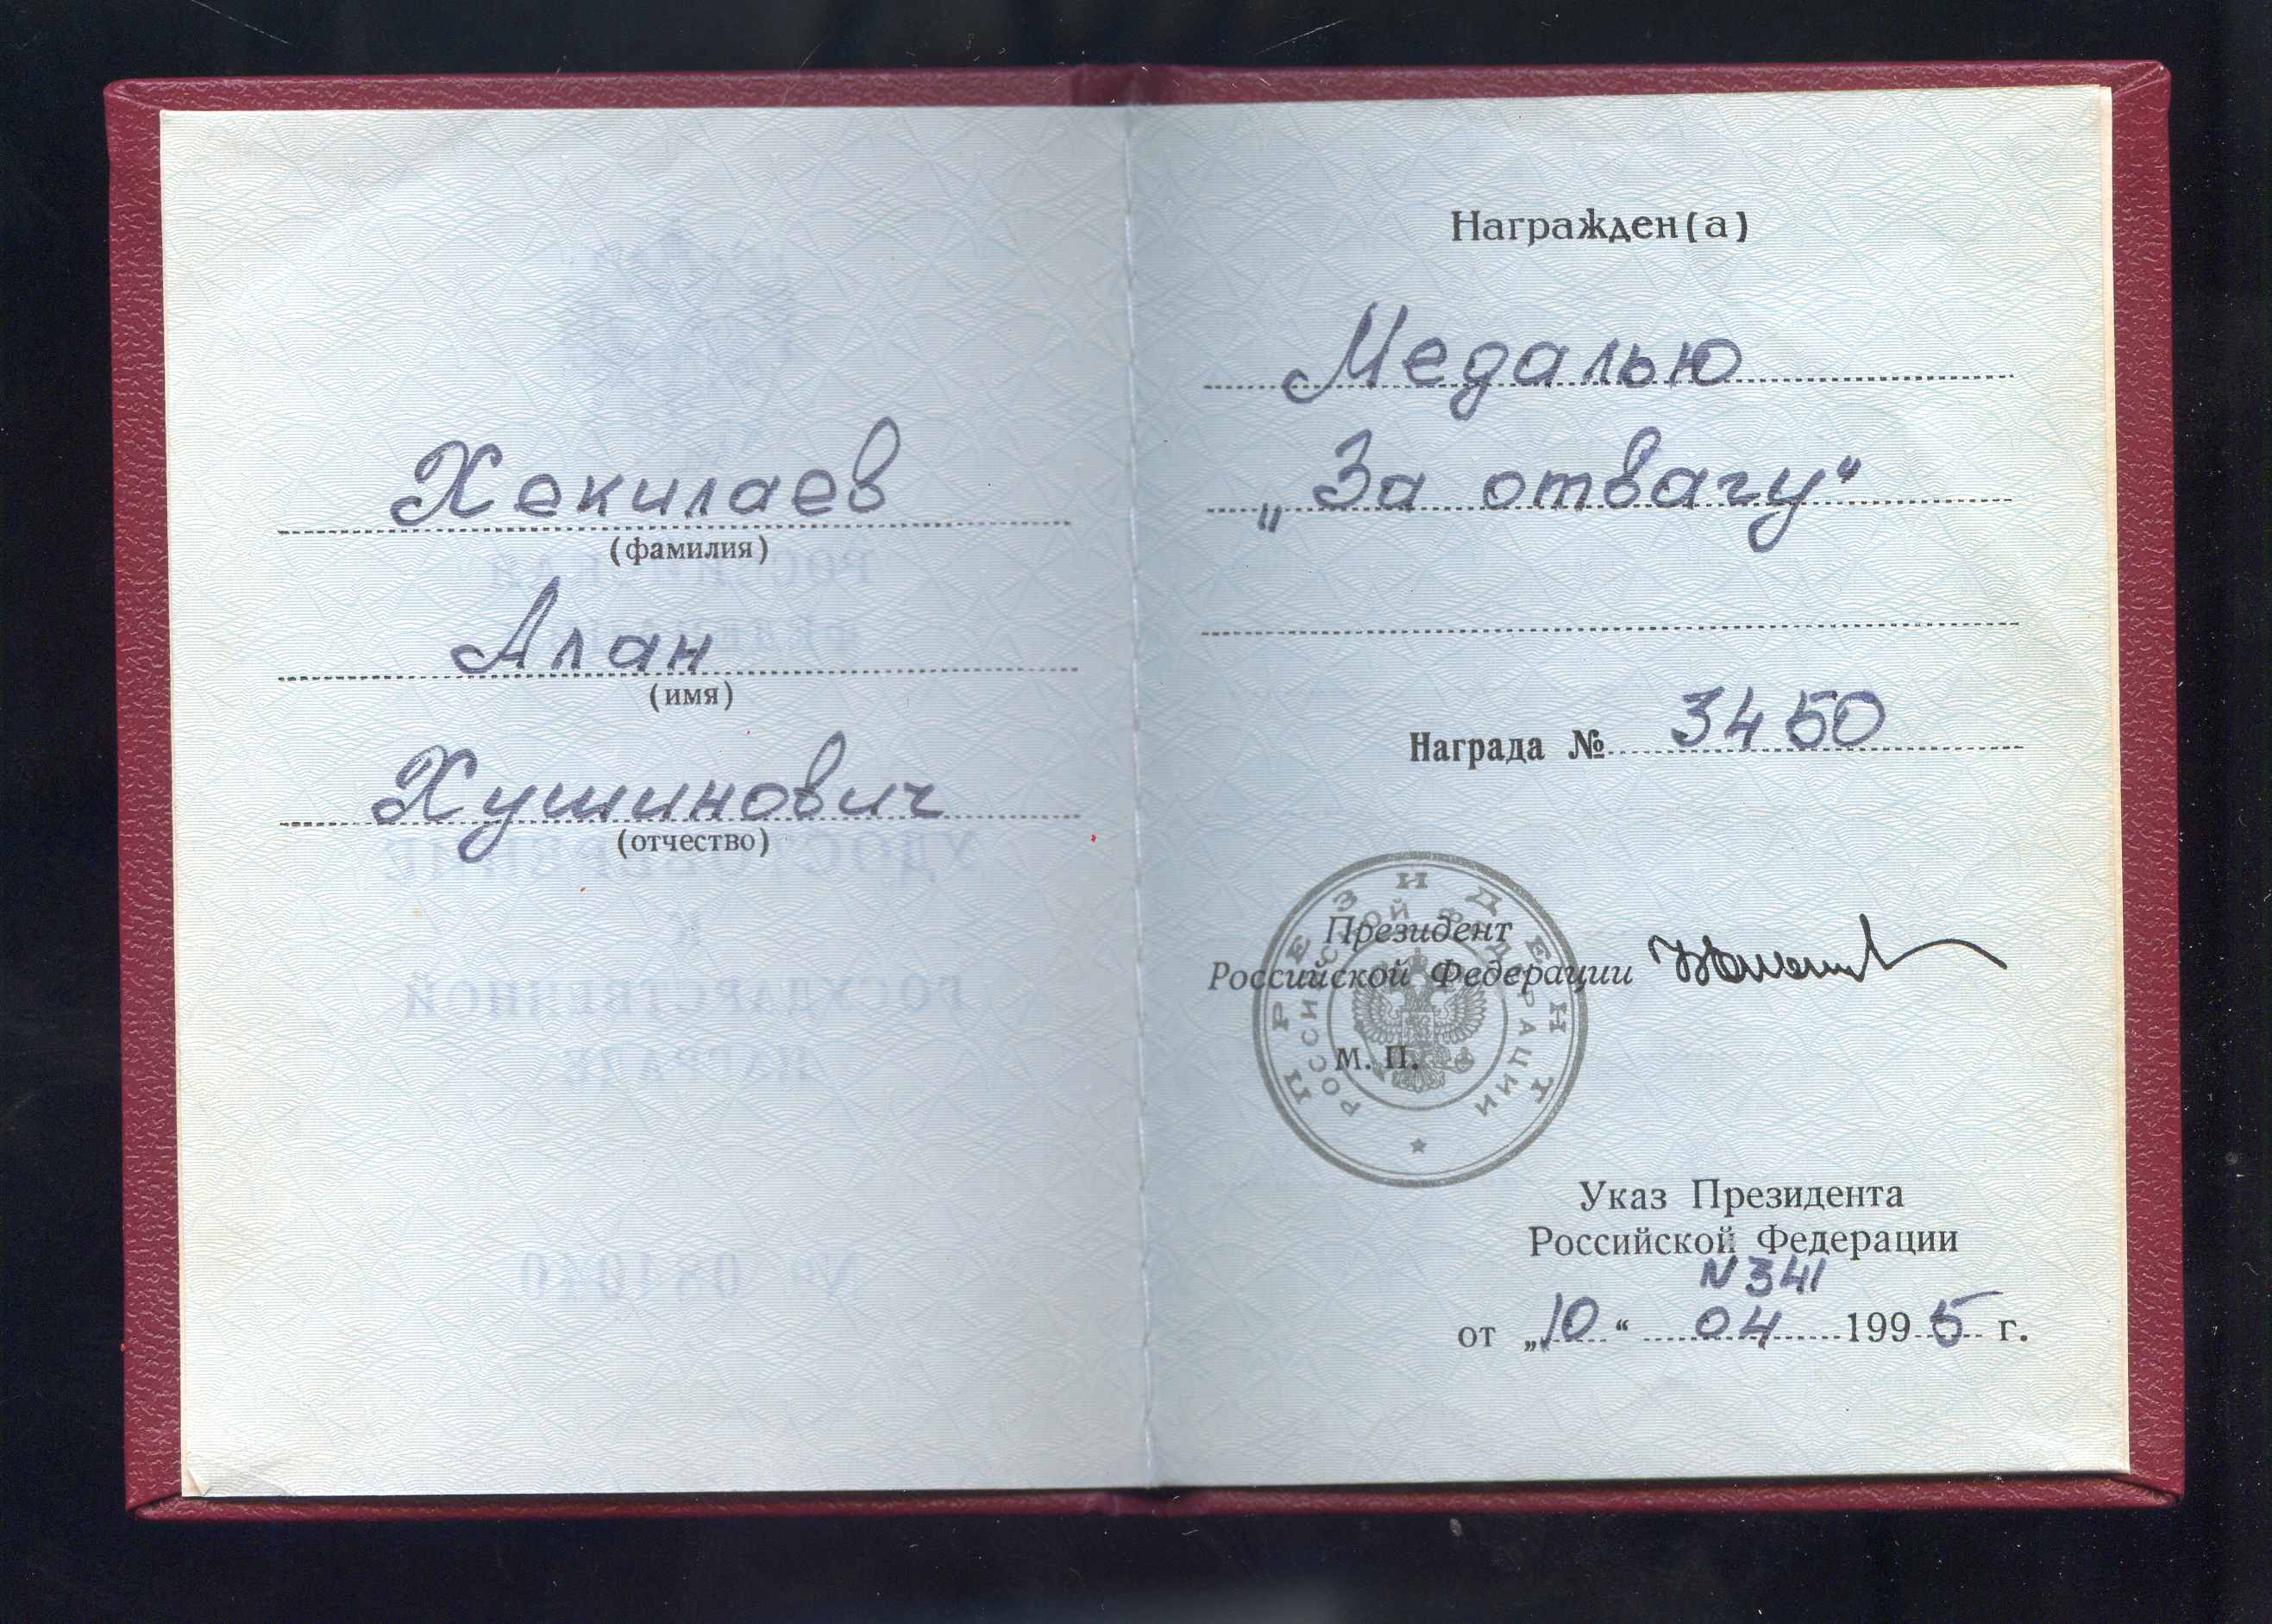 Хекилаев
(фамилия)
Алан
(имя)
Хушинович
(отчество)
Награжден(а)
Медалью
„За отвагу“
Награда № 3450
Президент
Российской Федерации
М. П.
ПРЕЗИДЕНТ
РОССИЙСКОЙ ФЕДЕРАЦИИ
Указ Президента
Российской Федерации
N 341
от „10“ 04 1995 г.